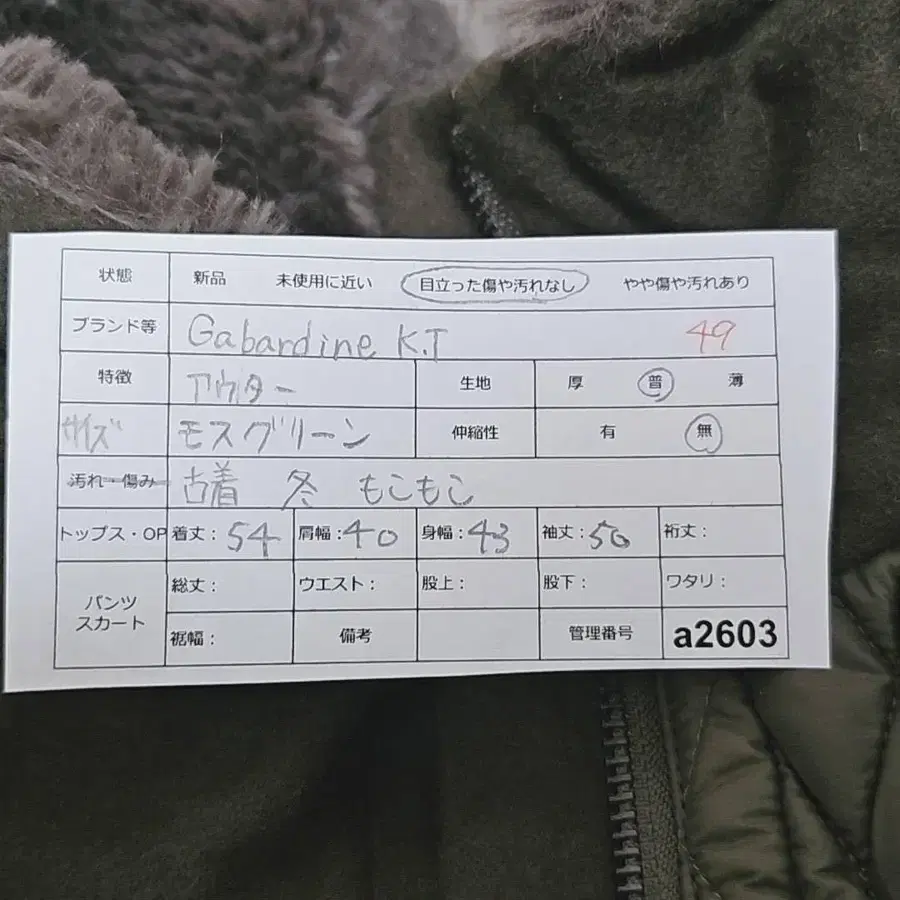 状態 新品 未使用に近い 目立った傷や汚れなし やや傷や汚れあり
ブランド等 Gabardine K.T 49
特徴 アウター 生地 厚 普 薄
サイズ モスグリーン 伸縮性 有 無
汚れ・傷み 古着 冬 もこもこ
トップス・OP 着丈：54 肩幅：40 身幅：43 袖丈：56 裄丈：
パンツ スカート 総丈： ウエスト： 股上： 股下： ワタリ：
裾幅： 備考 管理番号 a2603